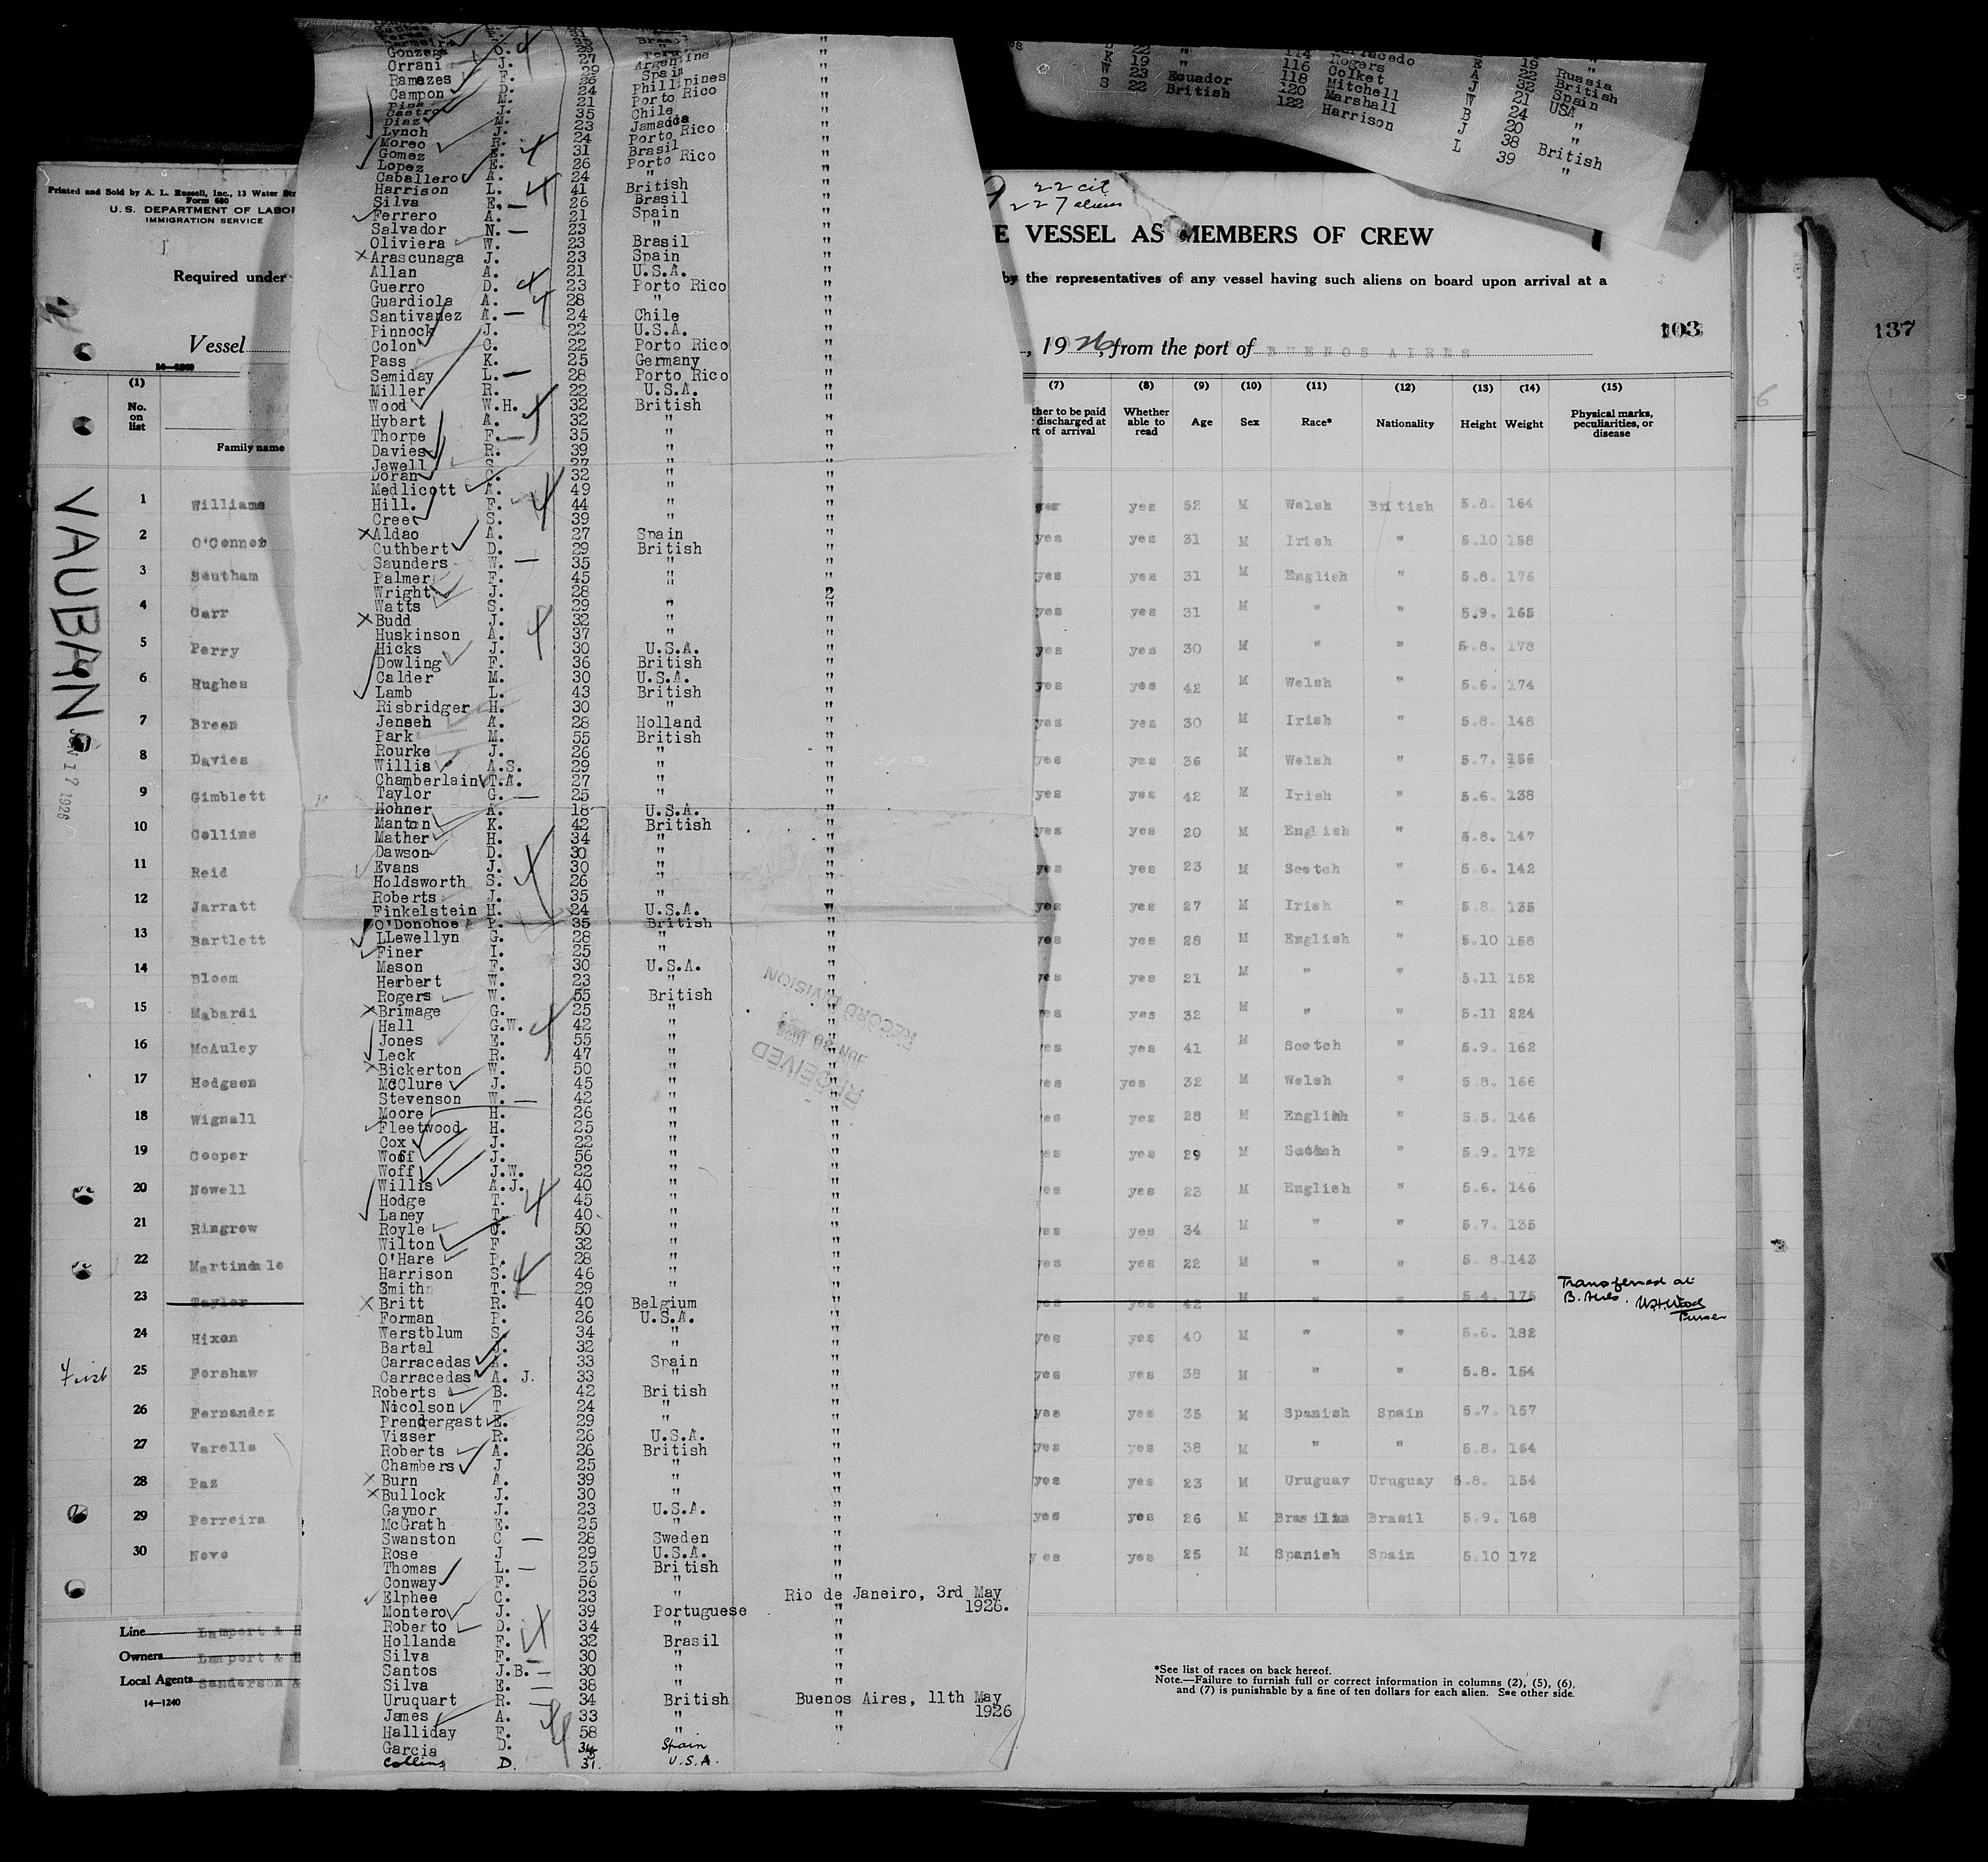 Gonzaga O. 23 Peru "
Orrani J. 27 Argentine "
Ramazes F. 29 Spain "
Campon D. 24 Phillipines "
M. 21 Porto Rico "
Castro J. 35 Chile "
Diaz M. 23 Jamacca "
Lynch J. 24 Porto Rico "
Moreo R. 31 Brasil "
Gomez E. 26 Porto Rico "
Lopez E. 24 " "
Caballero A.
Harrison L. 41 British "
Silva E. 26 Brasil "
Ferrero A. 21 Spain "
Salvador N. 23 " "
Oliviera W. 23 Brasil "
Arascunaga J. 23 Spain "
Allan A. 21 U.S.A. "
Guerro D. 23 Porto Rico "
Guardiola A. 28 " "
Santivanez A. 24 Chile "
Pinnock J. 22 U.S.A. "
Colon C. 22 Porto Rico "
Pass K. 25 Germany "
Semiday L. 28 Porto Rico "
Miller R. 22 U.S.A. "
Wood W.H. 32 British "
Hybart A. 32 " "
Thorpe F. 35 " "
Davies R. 39 " "
Jewell S. 27 " "
Doran C. 32 " "
Medlicott A. 49 " "
Hill. F. 44 " "
Creer S. 39 " "
Aldao A. 27 Spain "
Cuthbert D. 29 British "
Saunders W. 35 " "
Palmer F. 45 " "
Wright J. 28 " 2
Watts S. 29 " "
Budd J. 32 " "
Huskinson A. 37 " "
Hicks J. 30 U.S.A. "
Dowling F. 36 British "
Calder M. 30 U.S.A. "
Lamb L. 43 British "
Risbridger H. 30 " "
Jenseh A. 28 Holland "
Park M. 55 British "
Rourke J. 26 " "
Willis A.S. 29 " "
Chamberlain T.A. 27 " "
Taylor G. 25 " "
Mohner A. 18 U.S.A. "
Manton K. 42 British "
Mather H. 34 " "
Dawson D. 30 " "
Evans J. 30 " "
Holdsworth S. 26 " "
Roberts J. 35 " "
Finkelstein H. 24 U.S.A. "
O'Donohoe P. 35 British "
LLewellyn G. 28 " "
Finer I. 25 " "
Mason F. 30 U.S.A. "
Herbert W. 23 " "
Rogers W. 55 British "
Brimage G. 25 " "
Hall G.W. 42 " "
Jones E. 55 " "
Leck R. 47 " "
Bickerton W. 50 " "
McClure J. 45 " "
Stevenson W. 42 " "
Moore H. 26 " "
Fleetwood H. 25 " "
Cox J. 22 " "
Woff J. 56 " "
Woff J.W. 22 " "
Willis A.J. 40 " "
Hodge T. 45 " "
Laney T. 40 " "
Royle C. 50 " "
Wilton F 32 " "
O'Hare P. 28 " "
Harrison S. 46 " "
Smith T. 29 " "
Britt R. 40 Belgium "
Forman P. 26 U.S.A. "
Werstblum S. 34 " "
Bartal J. 32 " "
Carracedas A. 33 Spain "
Carracedas A. J. 33 " "
Roberts B. 42 British "
Nicolson T 24 " "
Prendergast E. 29 " "
Visser R. 26 U.S.A. "
Roberts A. 26 British "
Chambers J 25 " "
Burn A. 39 " "
Bullock J. 30 " "
Gaynor J. 23 U.S.A. "
McGrath E. 25 " "
Swanston C 28 Sweden "
Rose J 29 U.S.A. "
Thomas L. 25 British "
Conway F. 56 " "
Elphee C. 23 " Rio de Janeiro, 3rd May 1926.
Montero J. 39 Portuguese "
Roberto D. 34 " "
Hollanda F. 32 Brasil "
Silva F. 30 " "
Santos J.B. 30 " "
Silva E. 38 " "
Uruquart R. 34 British Buenos Aires, 11th May 1926
James A. 33 " "
Halliday F. 58 " "
Garcia D. 34 Spain
Collins D. 31. U.S.A.
RECEIVED
RECORD DIVISION
K 19 " 116 Rogers E 19 "
W 23 Ecuador 118 Colket A 22 Russia
S 22 British 120 Mitchell J 32 British
122 Marshall W 21 Spain
Harrison B 24 USA
J 20 "
38 "
L 39 British
"
Printed and Sold by A. L. Russell, Inc., 13 Water Str
Form 680
U.S. DEPARTMENT OF LABOR
IMMIGRATION SERVICE
22 cit
227 aliens
E VESSEL AS MEMBERS OF CREW
Required under
by the representatives of any vessel having such aliens on board upon arrival at a
103
137
Vessel
, 1926, from the port of BUENOS AIRES
(1) (7) (8) (9) (10) (11) (12) (13) (14) (15)
No. on list
Family name
ther to be paid discharged at rt of arrival
Whether able to read
Age Sex Race* Nationality Height Weight
Physical marks, peculiarities, or disease
VAUBAN
JUN 17 1926
1 Williams yes yes 52 M Welsh British 5.8. 164
2 O'Connob yes yes 31 M Irish " 5.10 158
3 Southam yes yes 31 M English " 5.8. 176
4 Carr yes yes 31 M " " 5.9. 165
5 Perry yes yes 30 M " " 5.8. 178
6 Hughes yes yes 42 M Welsh " 5.6. 174
7 Breen yes yes 30 M Irish " 5.8. 148
8 Davies yes yes 36 M Welsh " 5.7. 156
9 Gimblett yes yes 42 M Irish " 5.6. 138
10 Collins yes yes 20 M English " 5.8. 147
11 Reid yes yes 23 M Scotch " 5.6. 142
12 Jarratt yes yes 27 M Irish " 5.8. 135
13 Bartlett yes yes 28 M English " 5.10 158
14 Bloom yes yes 21 M " " 5.11 152
15 Mabardi es yes 32 M " " 5.11 224
16 McAuley es yes 41 M Scotch " 5.9. 162
17 Hodgson es yes 32 M Welsh " 5.8. 166
18 Wignall es yes 28 M English " 5.5. 146
19 Cooper es yes 29 M Scotch " 5.9. 172
20 Nowell es yes 23 M English " 5.6. 146
21 Ringrow es yes 34 M " " 5.7. 135
22 Martindale es yes 22 M " " 5. 8 143
23 Taylor yes yes 42 M " " 5.4. 175 Transferred at
B. Aires. W.H.Wood
Purser
24 Hixon yes yes 40 M " " 5.6. 182
First 25 Forshaw yes yes 38 M " " 5.8. 154
26 Fernandez yes yes 35 M Spanish Spain 5.7. 157
27 Varells yes yes 38 M " " 5.8. 164
28 Paz yes yes 23 M Uruguay Uruguay 5.8. 154
29 Perreira yes yes 26 M Brasilian Brasil 5.9. 168
30 Novo yes yes 25 M Spanish Spain 5.10 172
Line Lampert & H
Owners Lampert & H
Local Agents Sanderson &
14—1240
*See list of races on back hereof.
Note.—Failure to furnish full or correct information in columns (2), (5), (6),
and (7) is punishable by a fine of ten dollars for each alien. See other side.